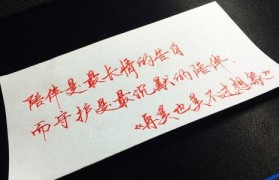 陪伴是最长情的告白
而守护是最沉默的陪伴.
"再美也美不过想像"